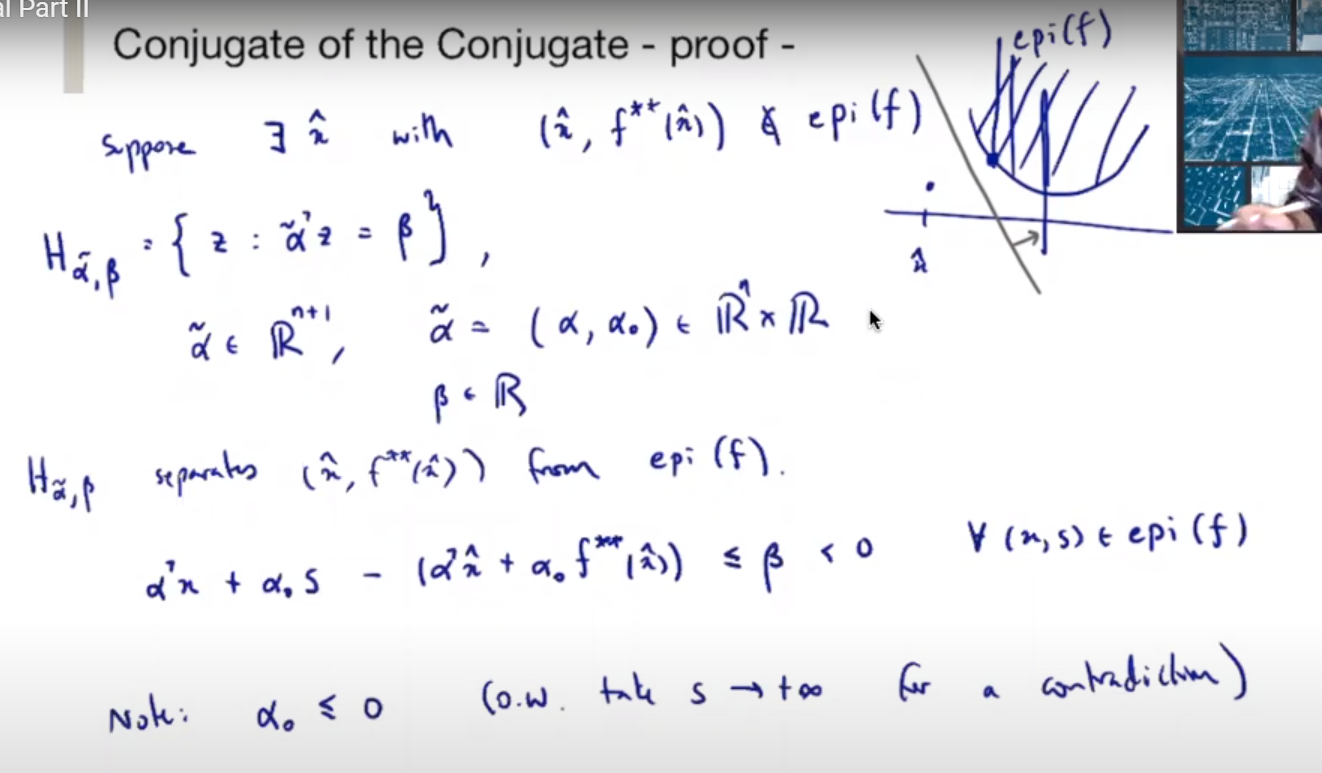 al Part II
Conjugate of the Conjugate - proof -
epi(f)
Suppose ∃ x̂ with (x̂, f**(x̂)) ∉ epi(f)
x̂
H_α̃,β = { z : α̃ᵀz = β },
α̃ ∈ ℝⁿ⁺¹, α̃ = (α, α₀) ∈ ℝⁿ × ℝ
β ∈ ℝ
H_α̃,β separates (x̂, f**(x̂)) from epi(f).
αᵀx + α₀ s - (αᵀx̂ + α₀ f**(x̂)) ≤ β < 0 ∀ (x, s) ∈ epi(f)
Note: α₀ ≤ 0 (o.w. take s → +∞ for a contradiction)